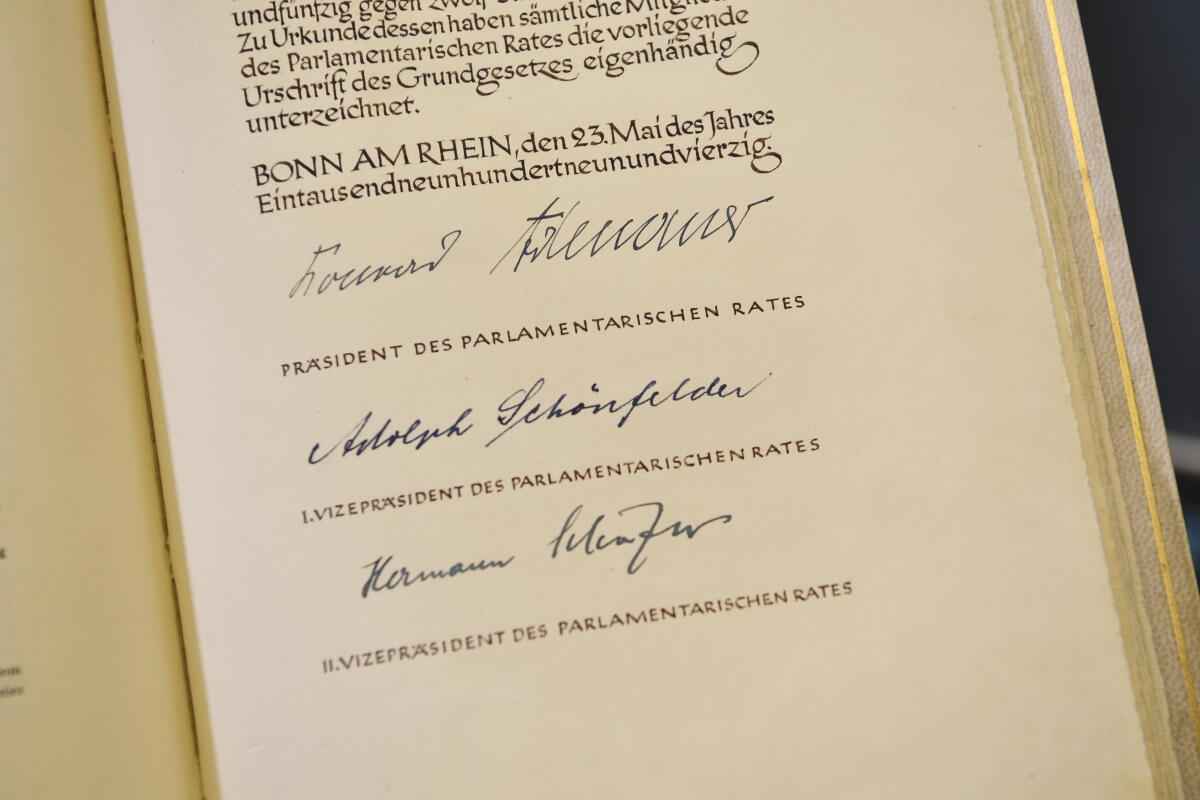 undfünfzig gegen zwölf
Zu Urkunde dessen haben sämtliche Mitglie
des Parlamentarischen Rates die vorliegende
Urschrift des Grundgesetzes eigenhändig
unterzeichnet.
BONN AM RHEIN, den 23. Mai des Jahres
Eintausendneunhundertneunundvierzig.
Konrad Adenauer
PRÄSIDENT DES PARLAMENTARISCHEN RATES
Adolph Schönfelder
I. VIZEPRÄSIDENT DES PARLAMENTARISCHEN RATES
Hermann Schäfer
II. VIZEPRÄSIDENT DES PARLAMENTARISCHEN RATES